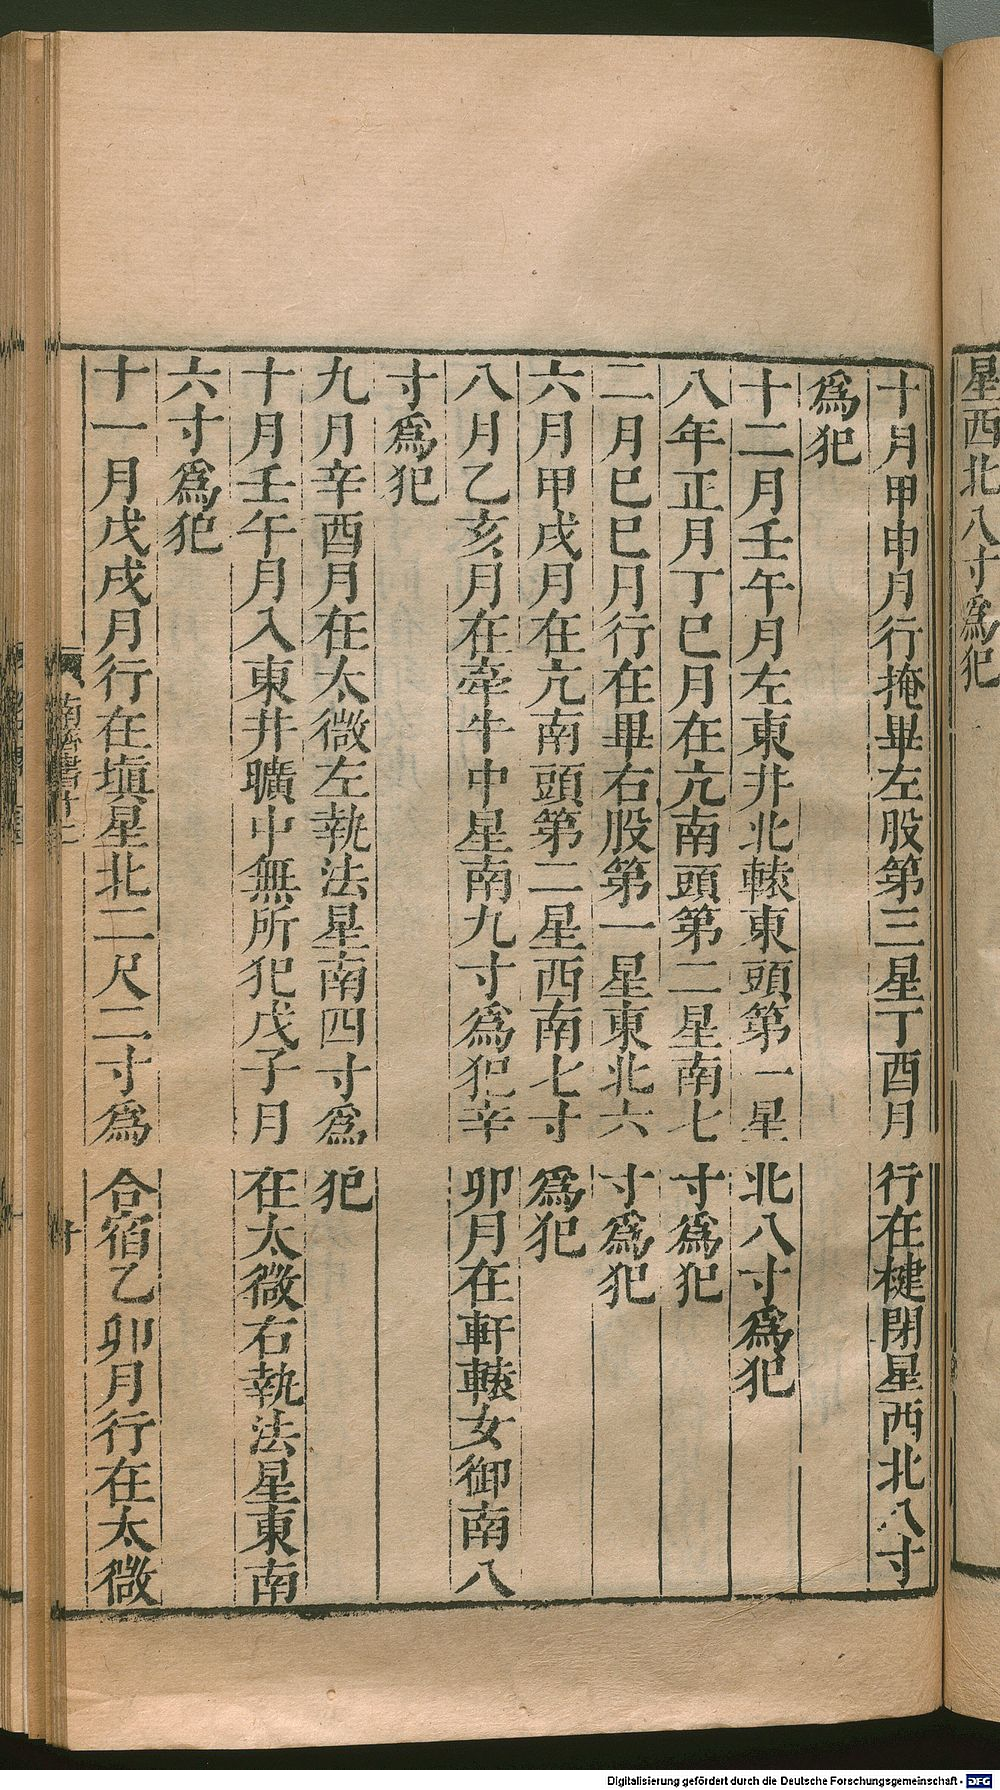 星西北八寸爲犯
十月甲申月行掩畢左股第三星丁酉月行在楗閉星西北八寸
爲犯
十二月壬午月左東井北轅東頭第一星北八寸爲犯
八年正月丁巳月在亢南頭第二星南七寸爲犯
二月巳巳月行在畢右股第一星東北六寸爲犯
六月甲戌月在亢南頭第二星西南七寸爲犯
八月乙亥月在牽牛中星南九寸爲犯辛卯月在軒轅女御南八
寸爲犯
九月辛酉月在太微左執法星南四寸爲犯
十月壬午月入東井曠中無所犯戊子月在太微右執法星東南
六寸爲犯
十一月戊戌月行在塡星北二尺二寸爲合宿乙卯月行在太微
南齊書
Digitalisierung gefördert durch die Deutsche Forschungsgemeinschaft - DFG